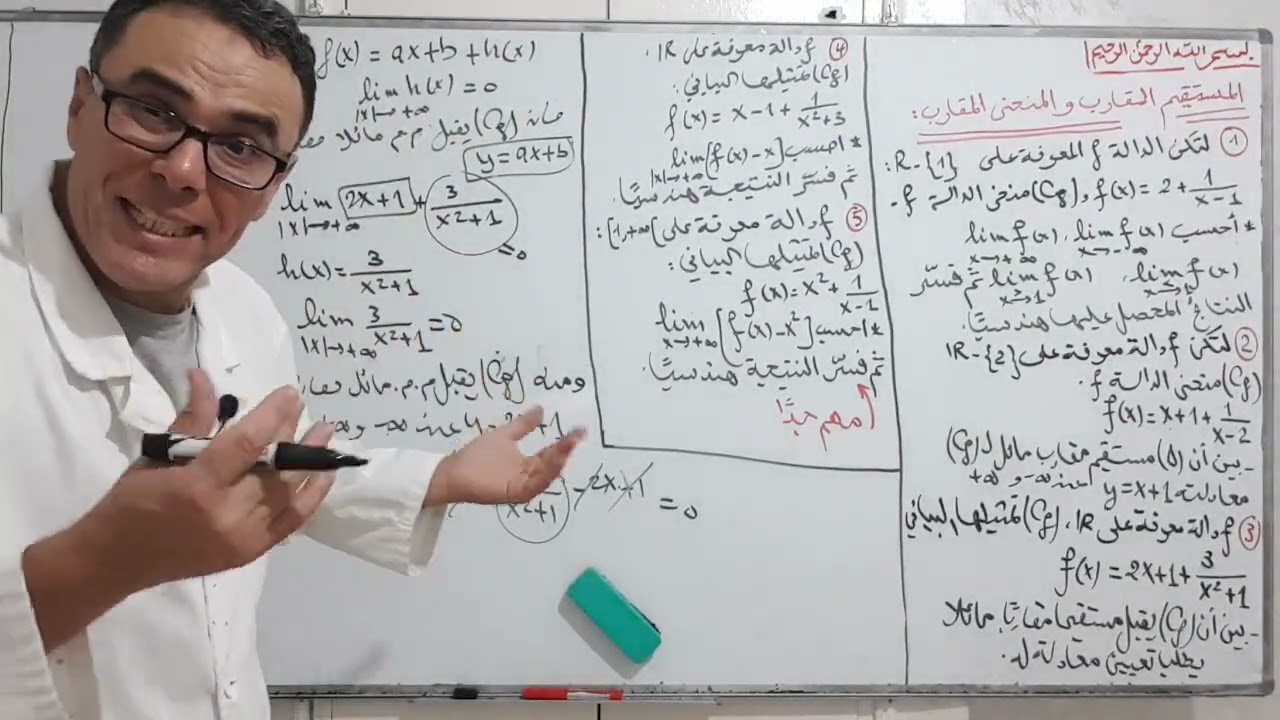 بسم الله الرحمن الرحيم
المستقيم المقارب والمنحنى المقارب:
① لتكن الدالة f المعرفة على R-{1}:
f(x) = 2 + 1/(x-1) و (Cf) منحنى الدالة f.
* أحسب lim f(x) x→-∞ , lim f(x) x→+∞
lim f(x) , lim f(x) ثم فسّر
النتائج المحصل عليها هندسيًّا.
② لتكن f دالة معرفة على R-{2}
(Cf) منحنى الدالة f.
f(x) = x+1+ 1/(x-2)
- بين أن (Δ) مستقيم مقارب مائل لـ (Cf)
عند -∞ و +∞
معادلته y = x+1
③ f دالة معرفة على R، (Cf) تمثيلها البياني
f(x) = 2x+1+ 3/(x²+1)
- بين أن (Cf) يقبل مستقيما مقاربًا مائلا
يطلب تعيين معادلة له.
④ f دالة معرفة على R.
(Cf) تمثيلها البياني
f(x) = x-1+ 1/(x²+3)
* احسب lim [f(x)-x] |x|→+∞
ثم فسّر النتيجة هندسيًّا.
⑤ f دالة معرفة على ]1,+∞[:
(Cf) تمثيلها البياني:
f(x) = x² + 1/(x-1)
* احسب lim [f(x)-x²] x→+∞
ثم فسّر النتيجة هندسيًّا.
مهم جدًّا
f(x) = ax+b+h(x)
lim h(x) = 0 |x|→+∞
فإن (Cf) يقبل م.م مائلا
y = ax+b
lim 2x+1 + 3/(x²+1) |x|→+∞
= 0
h(x) = 3/(x²+1)
lim 3/(x²+1) = 0 |x|→+∞
ومنه (Cf) يقبل م.م. مائل
عند -∞
x²+1 - 2x+1 = 0